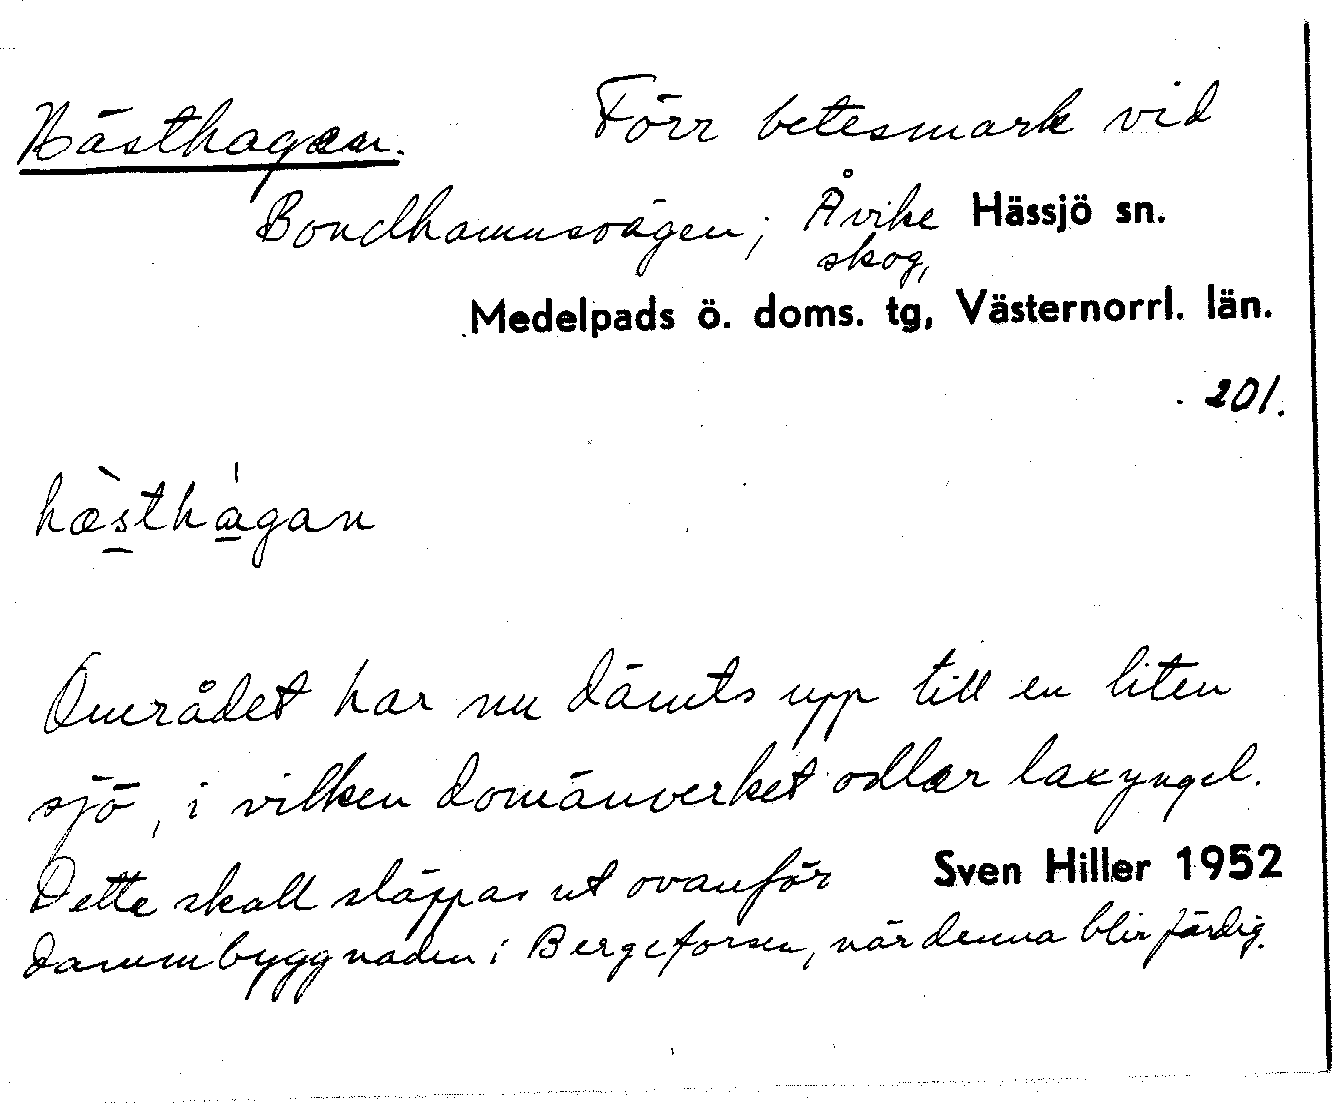 Hästhagen. Förr betesmark vid
Bondhamnsvägen; Åvike Hässjö sn.
skog,
Medelpads ö. doms. tg, Västernorrl. län.
201.
hæ̀sthágan
Området har nu dämts upp till en liten
sjö, i vilken domänverket odlar laxyngel.
Detta skall släppas ut ovanför Sven Hiller 1952
dammbyggnaden i Bergeforsen, när denna blir färdig.